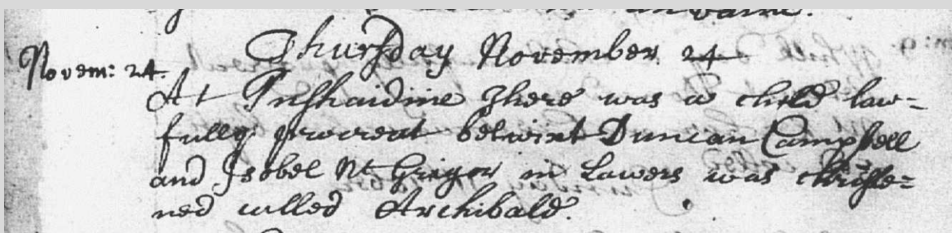 Thursday November 24
Novem: 24.
At Inshaidine there was a child law=
fully procreat betwixt Duncan Campbell
and Isobel Nc Gregor in Lawers was christe=
ned called Archibald.